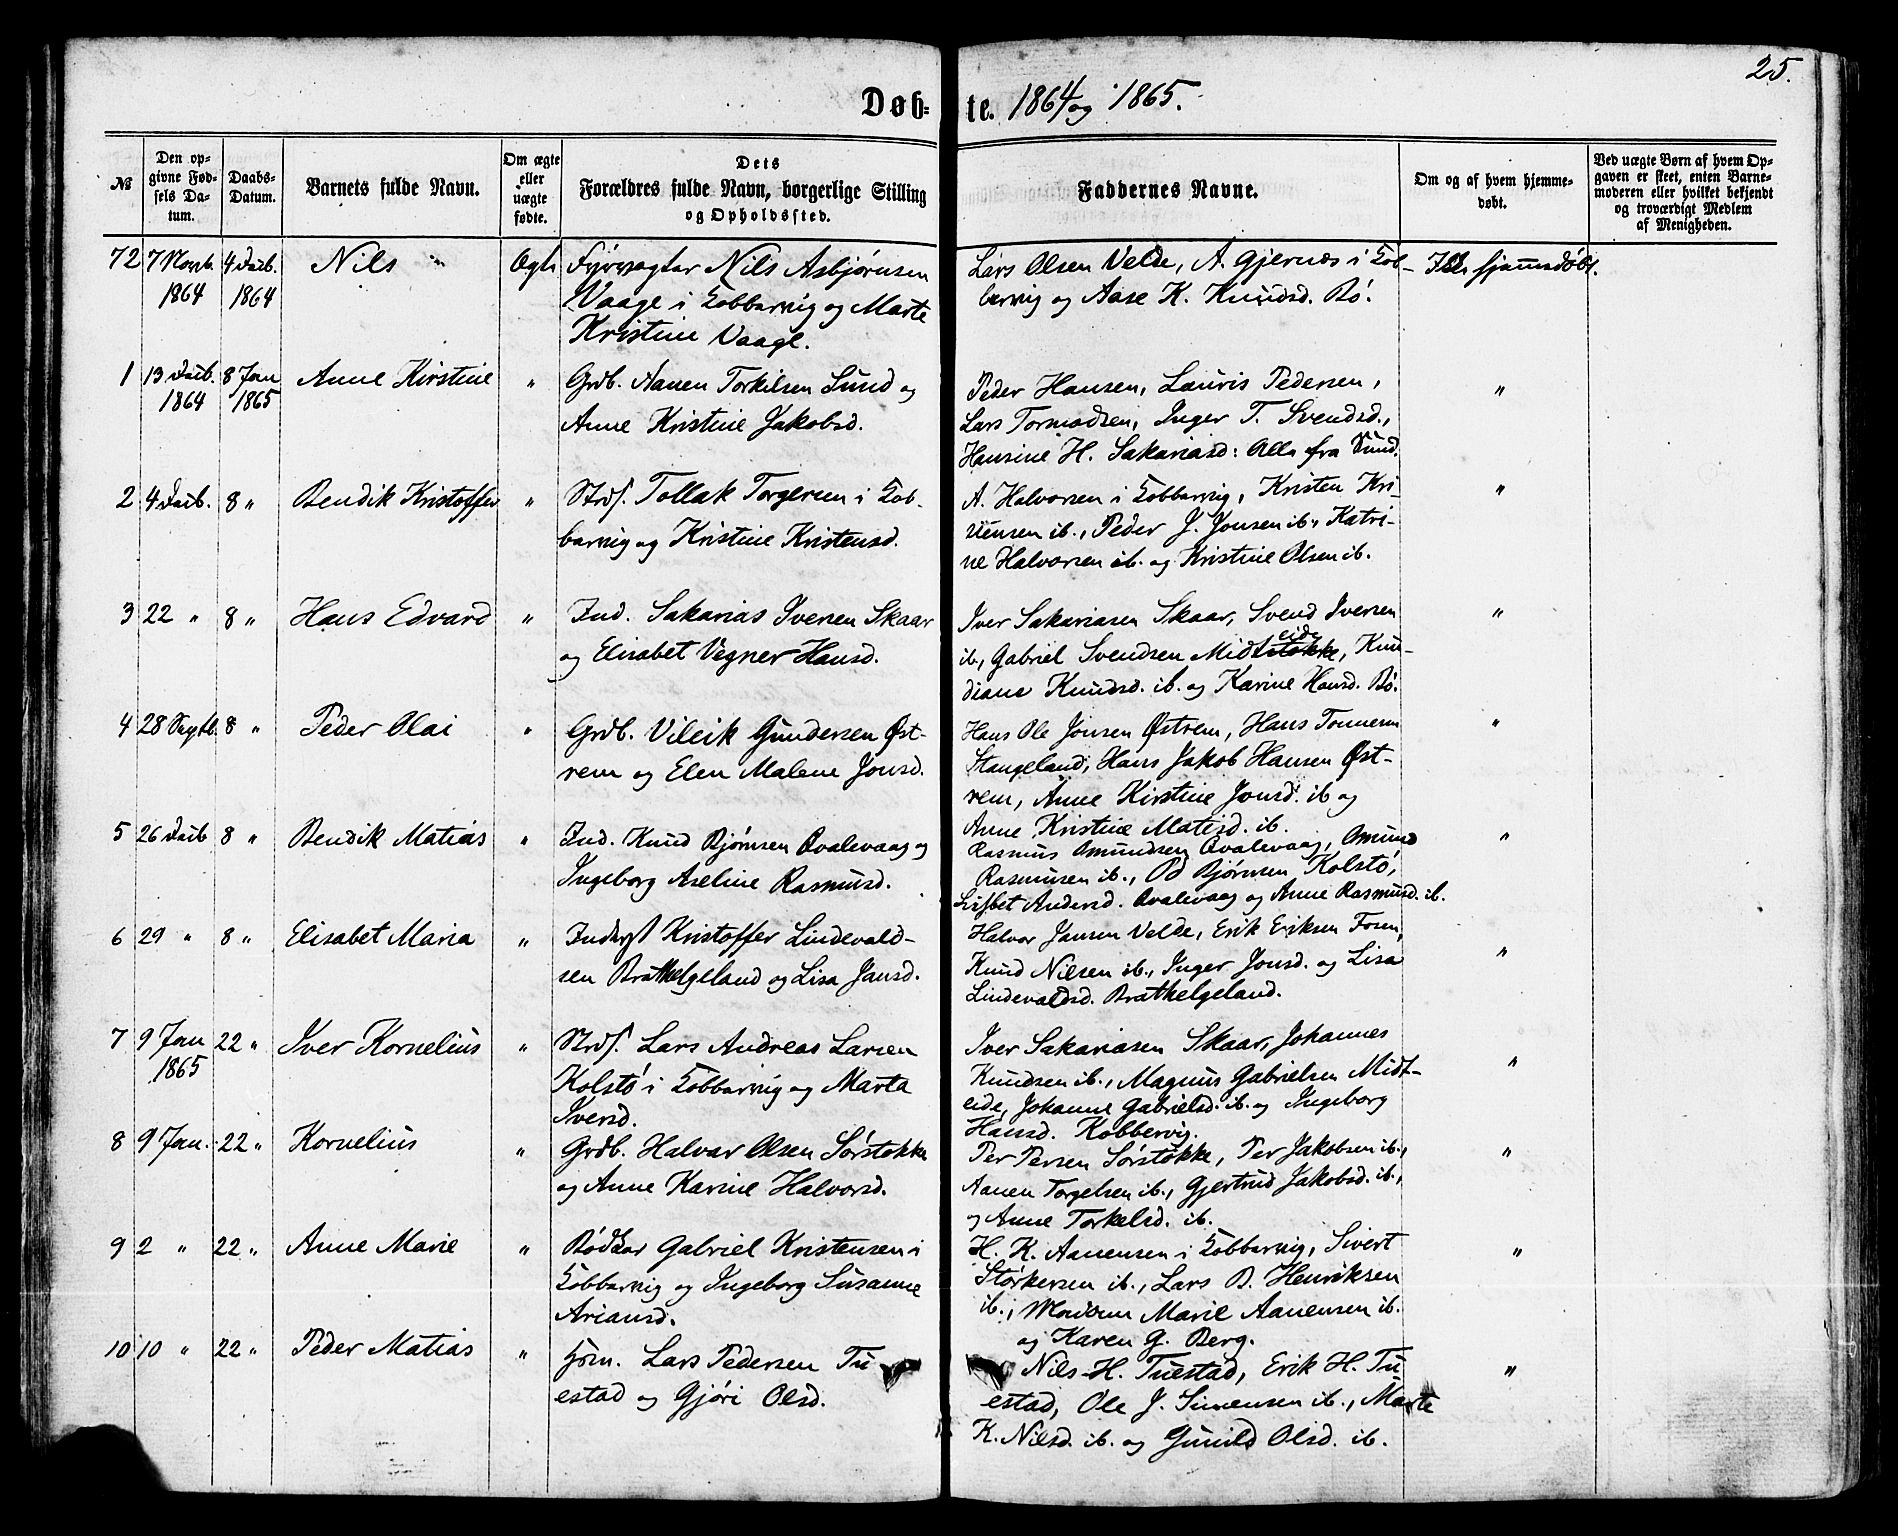 25.
Døbte. 1864 og 1865.
№
Den opgivne Fødsels Datum.
Daabs-Datum.
Barnets fulde Navn.
Om ægte eller uægte fødte.
Dets Forældres fulde Navn, borgerlige Stilling og Opholdssted.
Faddernes Navne.
Om og af hvem hjemmedøbt.
Ved uægte Børn af hvem Opgaven er skeet, enten Barnemoderen eller hvilket bekjendt og troværdigt Medlem af Menigheden.
72 7 Novb. 1864 4 Decb. 1864 Nils Ægte
Fyrvogter Nils Asbjørnsen
Vaage i Kobbervig og Marte
Kristine Vaage.
Lars Olsen Velde, A. Gjernæs i Kob-
bervig og Aase K. Knudsd. Bø.
Ikke hjemmedøbt.
1 13 Decb. 1864 8 Jan 1865 Anne Kirstine "
Grdb. Aanen Torkilsen Sund og
Anne Kristine Jakobsd.
Peder Hansen, Lauris Pedersen,
Lars Tormodsen, Inger T. Svendsd.,
Hansine H. Sakariasd: Alle fra Sund.
"
2 4 Decb. 8 " Bendik Kristoffer "
Strds. Tollak Torgersen i Kob-
bervig og Kristine Kristensd.
A. Halvorsen i Kobbervig, Kristen Kri-
stensen ib., Peder J. Jonsen ib., Katri-
ne Halvorsen ib. og Kristine Olsen ib.
"
3 22 " 8 " Hans Edvard "
Ind. Sakarias Iversen Skaar
og Elisabet Vegner Hansd.
Iver Sakariasen Skaar, Svend Iversen
ib, Gabriel Svendsen Midtstokke eide, Knu-
diane Knudsd. ib. og Karine Hansd. Bø.
"
4 28 Septb. 8 " Peder Olai "
Grdb. Vileik Gundersen Øst-
rem og Elen Malene Jonsd.
Hans Ole Jonsen Østrem, Hans Tonnesen
Stangeland, Hans Jakob Hansen Øst-
rem, Anne Kirstine Jonsd. ib og
Anne Kristine Matisd. ib.
"
5 26 Decb 8 " Bendik Matias "
Ind. Knud Bjørnsen Qvalevaag og
Ingeborg Aseline Rasmusd.
Rasmus Omundsen Qvalevaag, Omund
Rasmusen ib., Od Bjørnsen Kolstø,
Lisbet Andersd. Qvalevaag og Anne Rasmusd. ib.
"
6 29 " 8 " Elisabet Maria "
Inderst Kristoffer Lindevald-
sen Brathelgeland og Lisa Jansd.
Halvor Jansen Velde, Erik Eriksen Fosen,
Knud Nilsen ib., Inger Jonsd. og Lisa
Lindevaldsd. Brathelgeland.
"
7 9 Jan 1865 22 " Iver Kornelius "
Strds. Lars Andreas Larsen
Kolstø i Kobbervig og Marta
Iversd.
Iver Sakariasen Skaar, Johannes
Knudsen ib., Magnus Gabrielsen Midt-
eide, Johanne Gabrielsd. ib. og Ingeborg
Hansd. Kobbervig.
"
8 9 Jan. 22 " Kornelius "
Grdb. Halvar Olsen Sørstokke
og Anne Karine Halvorsd.
Per Persen Sørstokke, Per Jakobsen ib.,
Aanen Torgelsen ib., Gjertrud Jakobsd. ib.,
og Anne Torkelsd. ib.
"
9 2 " 22 " Anne Marie "
Bødker Gabriel Kristensen i
Kobbervig og Ingeborg Susanne
Ariansd.
H. K. Aanensen i Kobbervig, Sivert
Størkersen ib., Lars B. Henriksen
ib., Madam Marie Aanensen ib.
og Karen G. Berg.
"
10 10 " 22 " Peder Matias "
Hsm. Lars Pedersen Tu
estad og Gjøri Olsd.
Nils H. Tuestad, Erik H. Tu
estad, Ole J. Simensen ib., Marte
K. Nilsd. ib. og Gunild Olsd. ib.
"